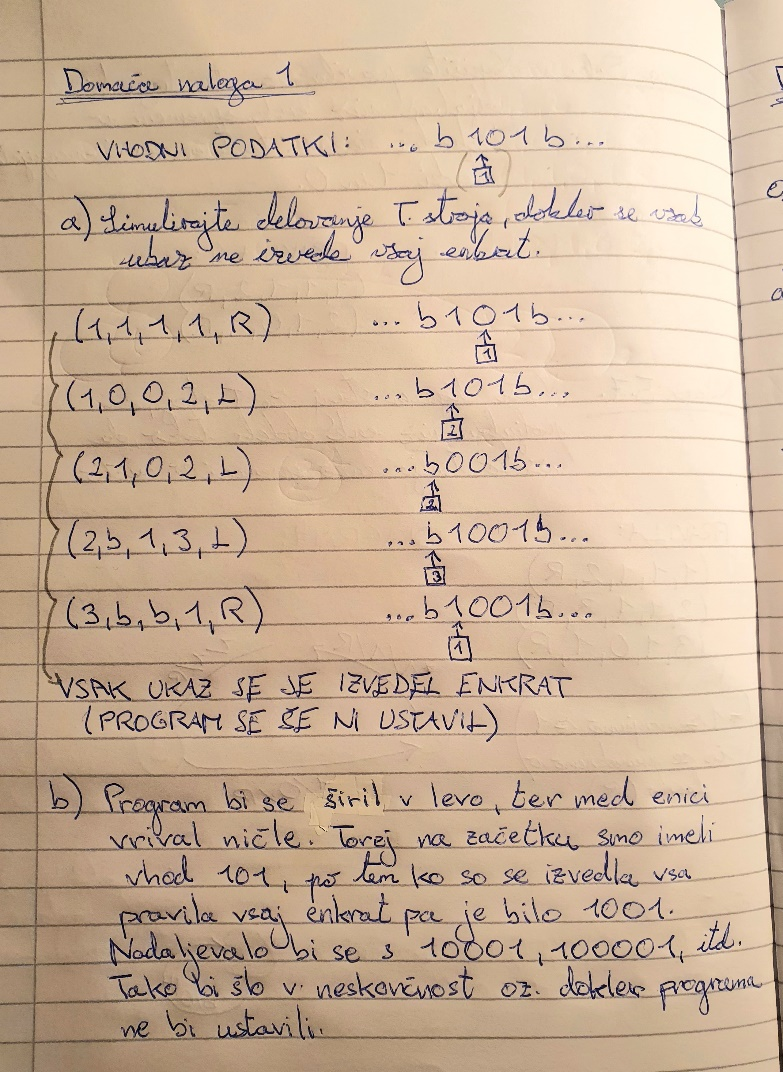 Domača naloga 1
VHODNI PODATKI: ... b 101 b...
1
a) Simulirajte delovanje T. stroja, dokler se vsak
ukaz ne izvede vsaj enkrat.
(1,1,1,1,R) ... b101b...
1
(1,0,0,2,L) ... b101b...
2
(2,1,0,2,L) ...b001b...
2
(2,b,1,3,L) ...b1001b...
3
(3,b,b,1,R) ...b1001b...
1
VSAK UKAZ SE JE IZVEDEL ENKRAT
(PROGRAM SE ŠE NI USTAVIL)
b) Program bi se širil v levo, ter med enici
vrival ničle. Torej na začetku smo imeli
vhod 101, po tem ko so se izvedla vsa
pravila vsaj enkrat pa je bilo 1001.
Nadaljevalo bi se s 10001, 100001, itd.
Tako bi šlo v neskončnost oz. dokler programa
ne bi ustavili.